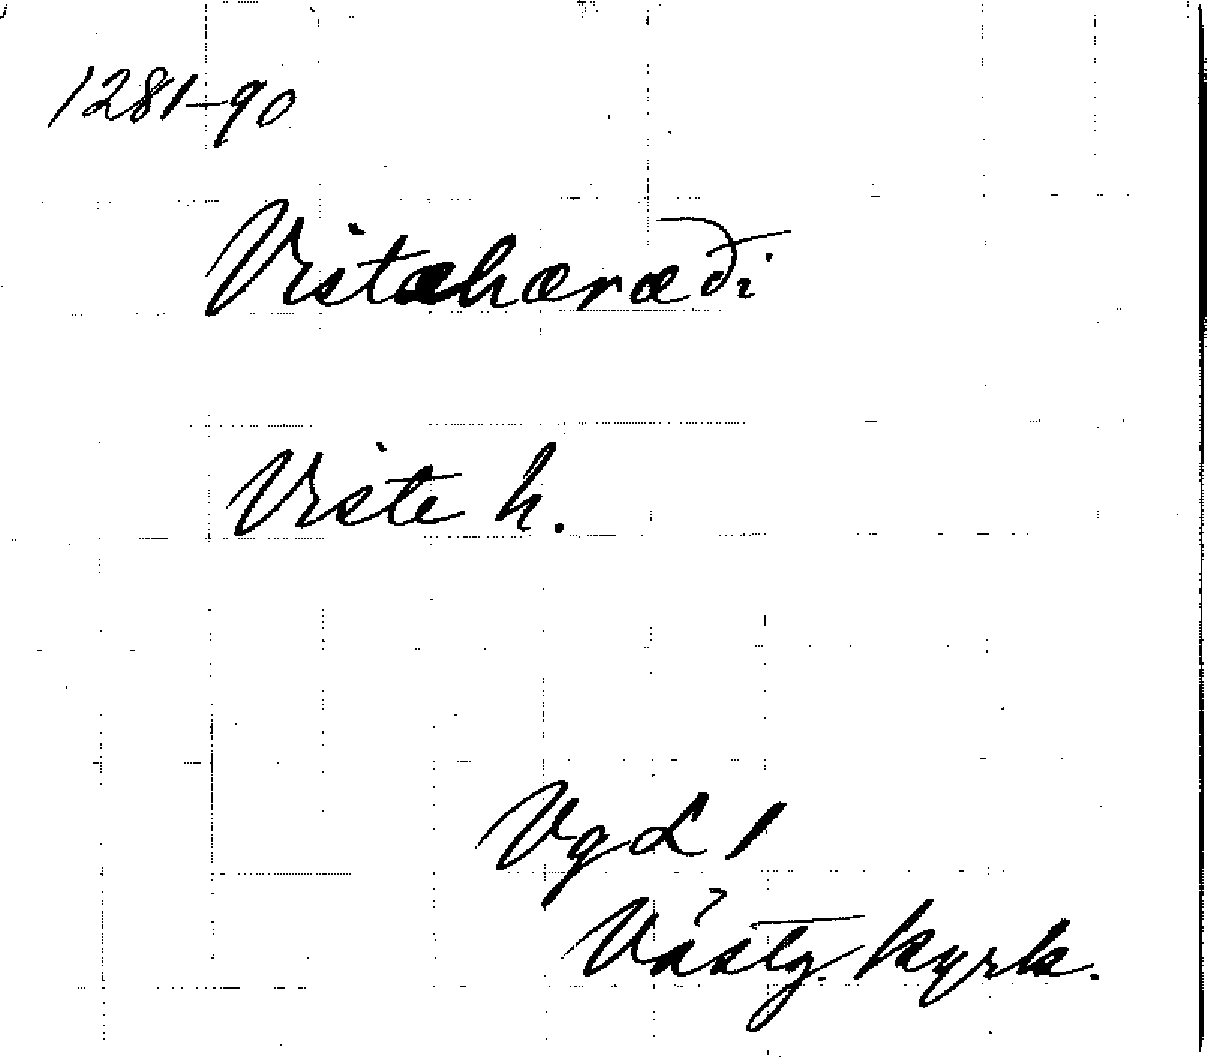 1281-90
Vistæhæræði
Viste h.
VgL 1
Västg. kyrk.